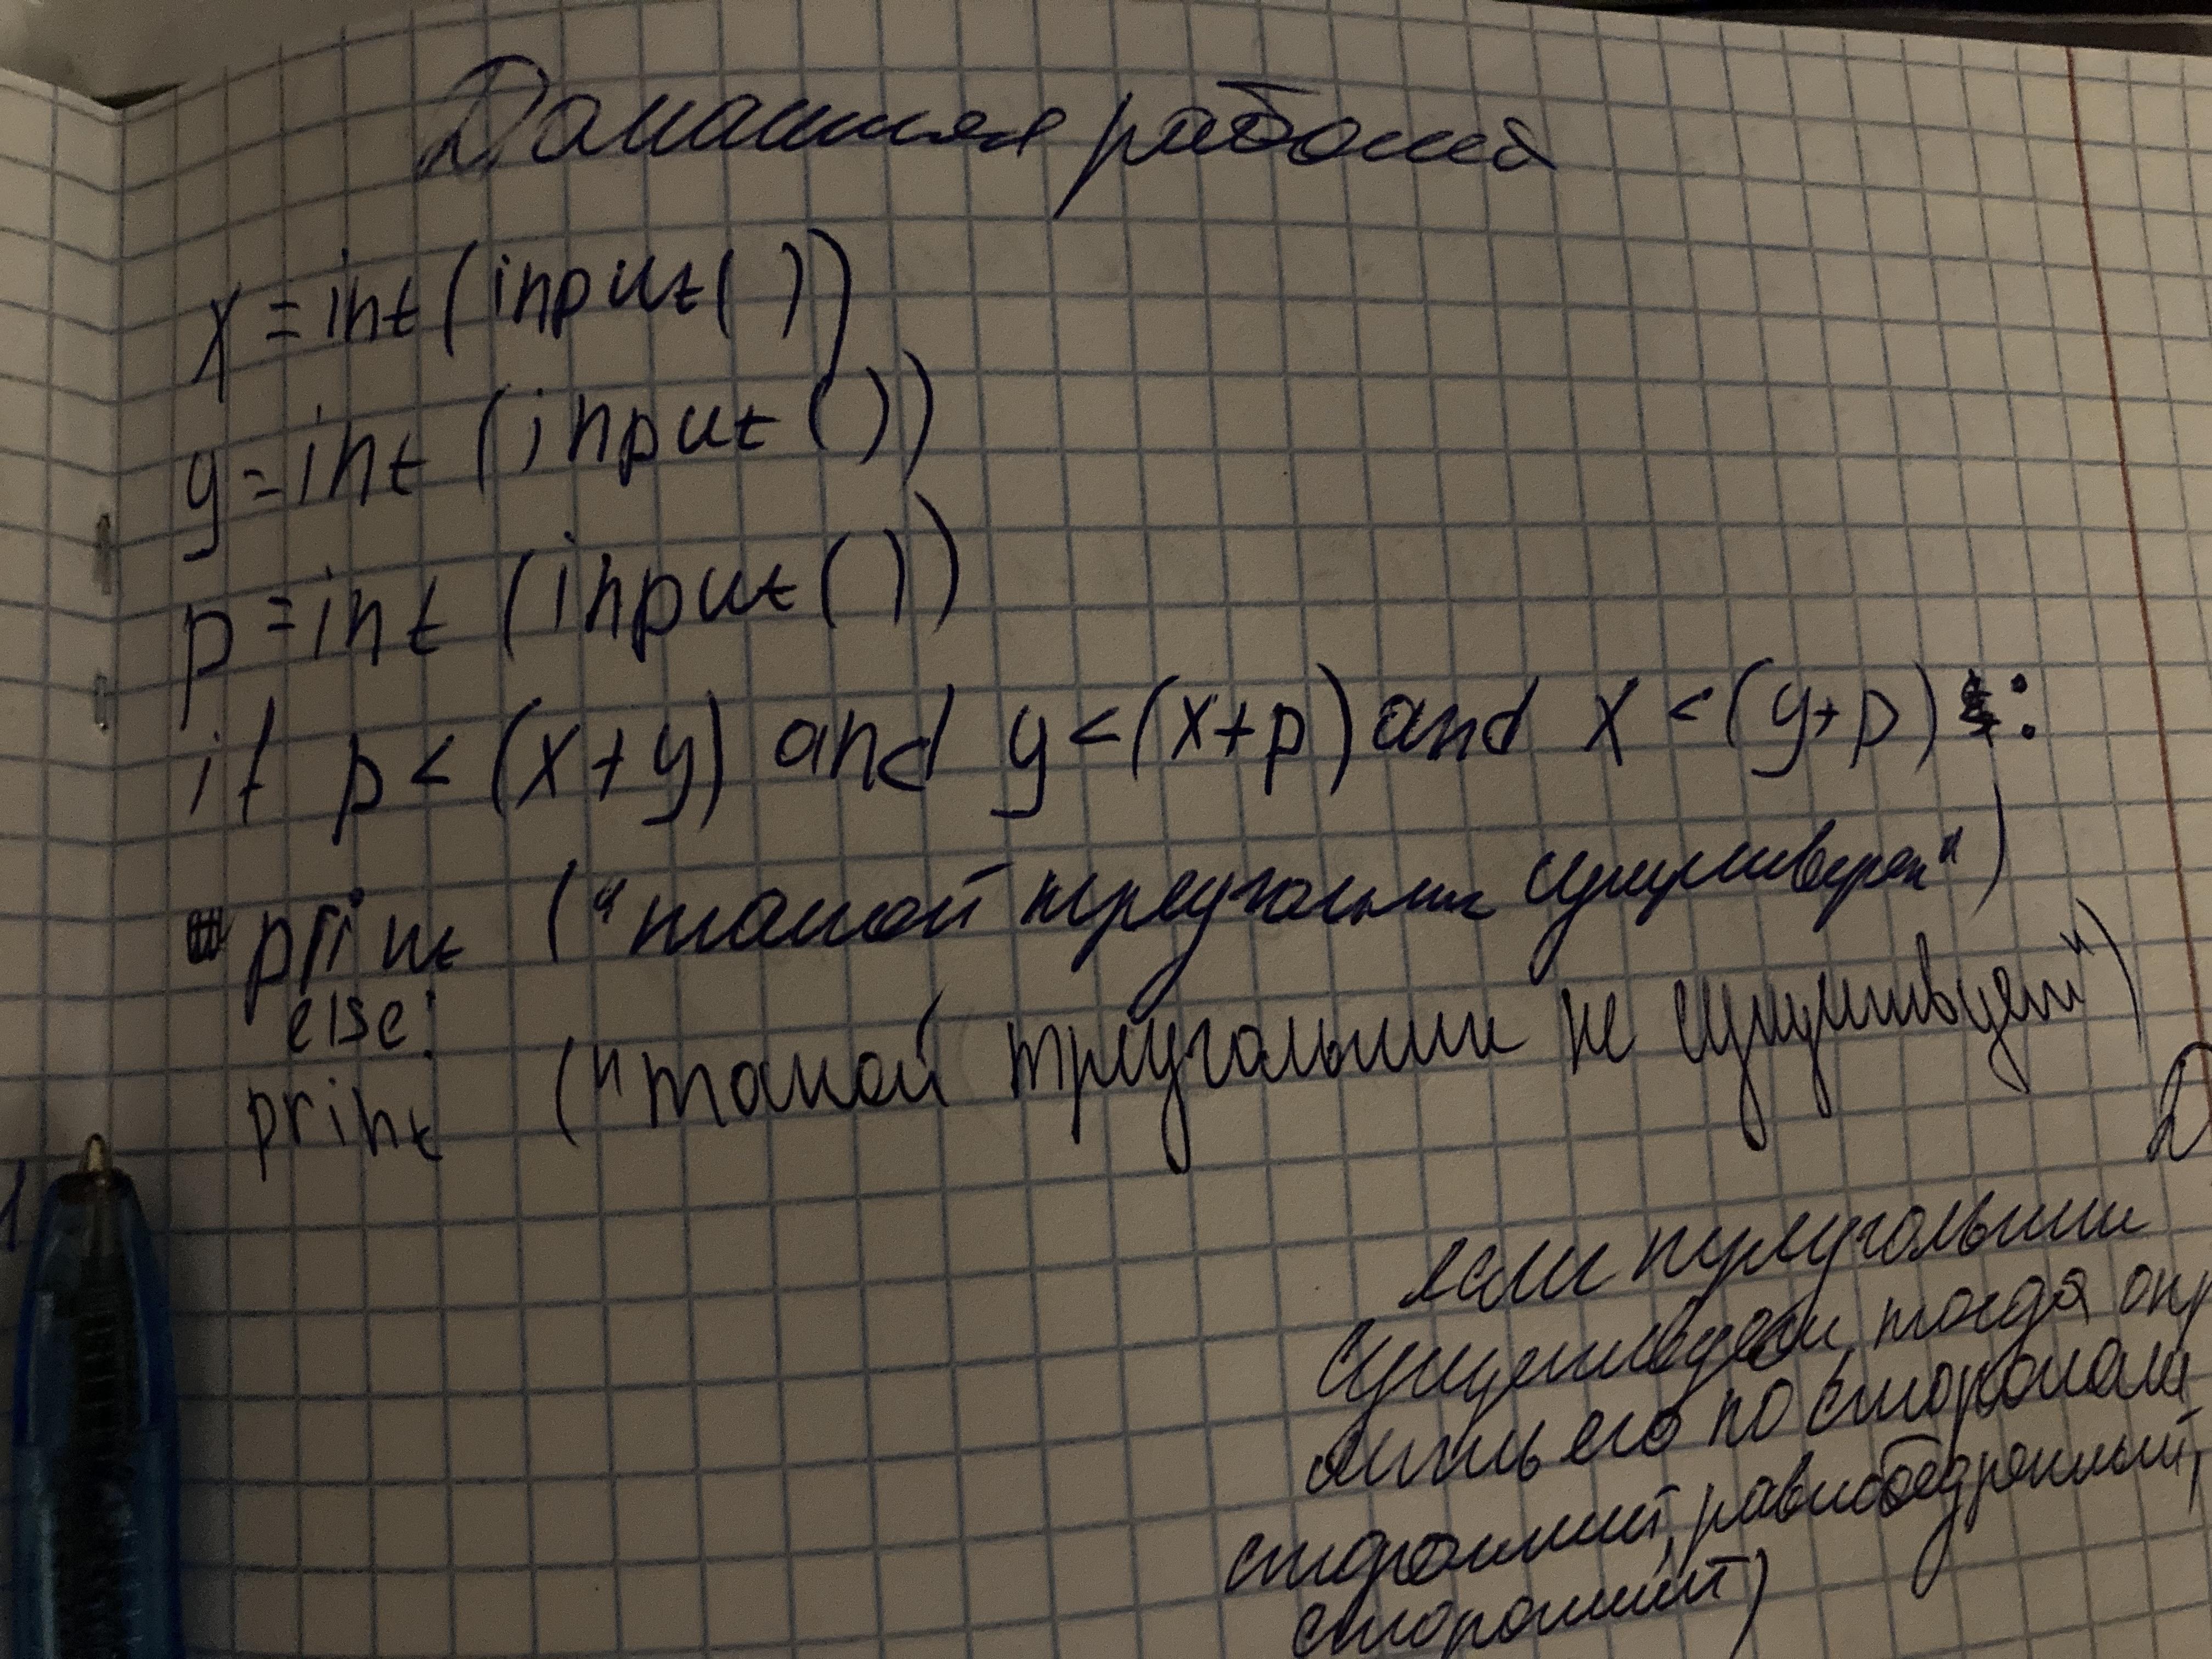 Домашняя работа
x=int(input())
y=int(input())
p=int(input())
if p<(x+y) and y<(x+p) and x<(y+p):
print ("такой треугольник существует")
else:
print ("такой треугольник не существует")
Д
если треугольник
существует, тогда опр
его по сторонам
сторонний, равнобедренный,
сторонний)